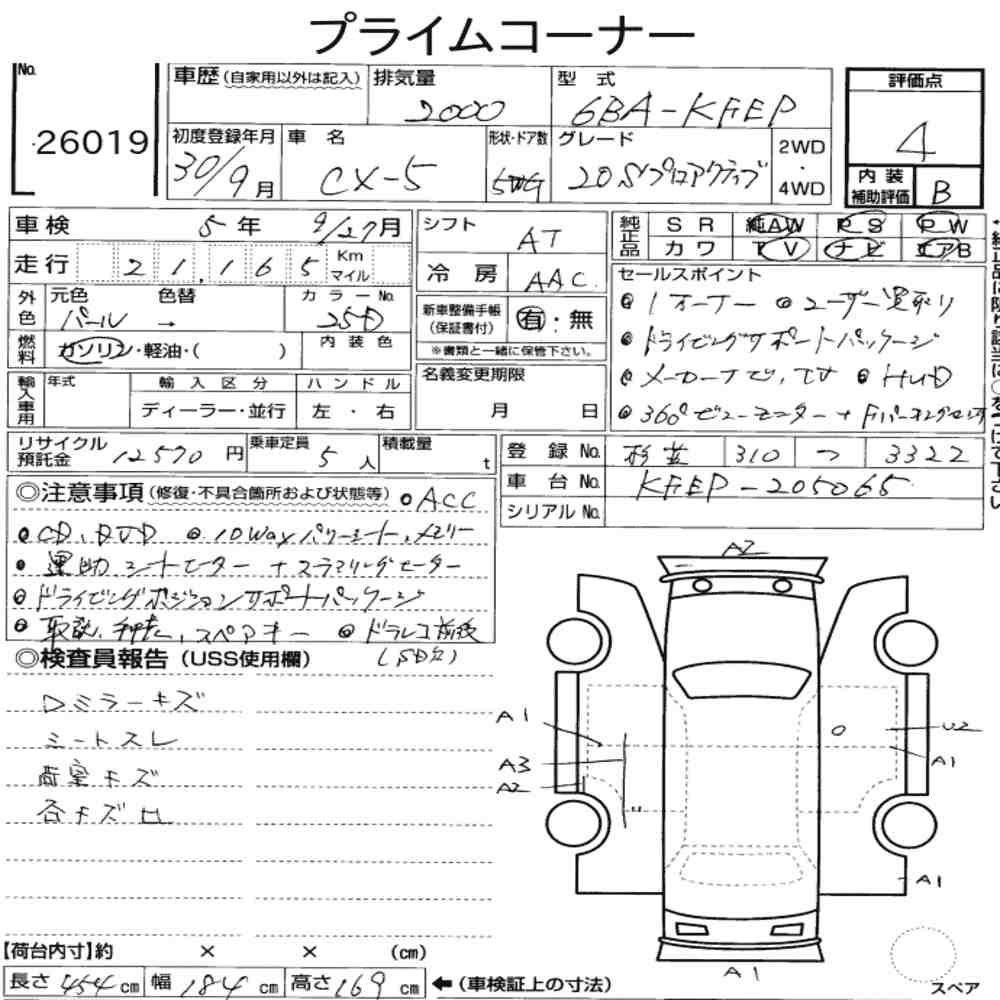 プライムコーナー
No. 26019
車歴(自家用以外は記入)
排気量 2000
型式 6BA-KFEP
評価点 4
初度登録年月 30/9月
車名 CX-5
形状・ドア数 5WG
グレード 20Sプロアクティブ
2WD・4WD
内装補助評価 B
車検 5年 9/27月
シフト AT
純正品 SR 純AW PS PW
カワ TV ナビ エアB
走行 21,165 Km マイル
冷房 AAC
セールスポイント
●1オーナー ●ユーザー買取り
●ドライビングサポートパッケージ
●メーカーナビ、TV ●HUD
●360°ビューモニター+Fパーキングセンサ
外色 元色 パール → 色替 カラーNo. 25D
新車整備手帳(保証書付) 有・無
※書類と一緒に保管下さい。
燃料 ガソリン・軽油・( )
内装色
名義変更期限 月 日
輸入車用 年式 輸入区分 ハンドル
ディーラー・並行 左・右
リサイクル預託金 12570円
乗車定員 5人
積載量 t
登録No. 杉並 310 つ 3322
車台No. KFEP-205065
シリアルNo.
◎注意事項(修復・不具合箇所および状態等) ●ACC
●CD、DVD ●10Wayパワーシート、メモリー
●運助シートヒーター+ステアリングヒーター
●ドライビングポジションサポートパッケージ
●取説、手帳、スペアキー ●ドラレコ前後
(SD欠)
◎検査員報告(USS使用欄)
Dミラーキズ
シートスレ
荷室キズ
各キズ凹
A2
A1
A3
A2
U2
A1
A1
A1
スペア
【荷台内寸】約 × × (cm)
長さ 454cm 幅 184cm 高さ 169cm ←(車検証上の寸法)